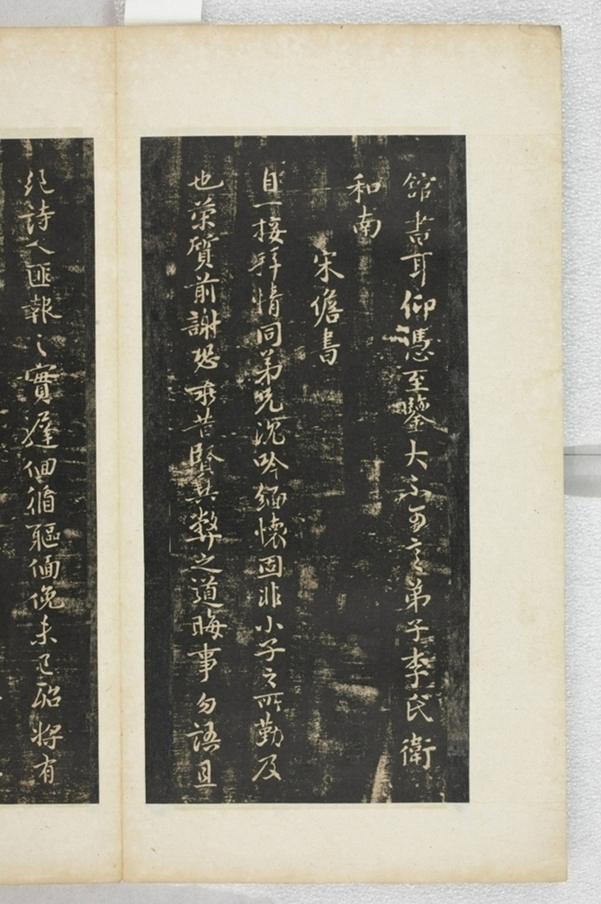 館書耳仰憑至鑒大不可言弟子李氏衛
和南
宋儋書
自一接拜情同弟兄沈吟緬懷固非小子之所勤及
也榮質前謝恐乖昔賢其數之道晦事勿語且
詩人匪報之實遲佪循軀俛未已 將有